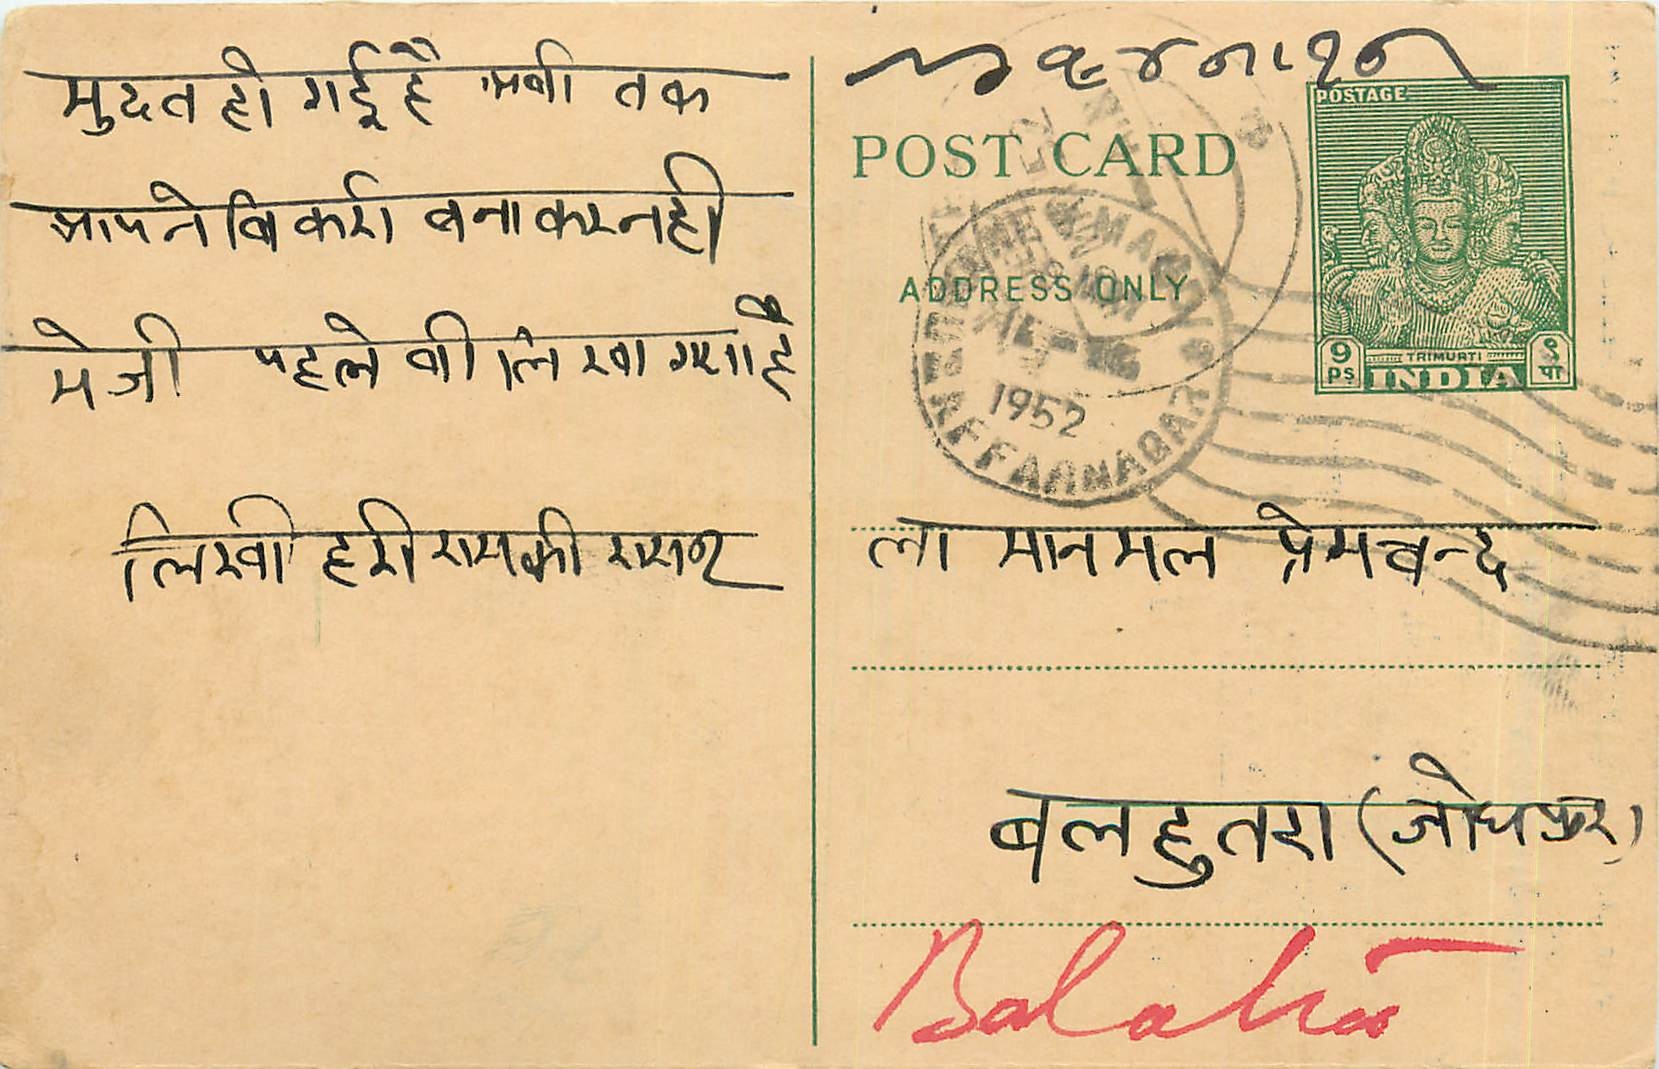 मुदत हो गई है अबी तक
आपने बिकरी बनाकर नही
भेजी पहले बी लिखा गया है
लिखी हरी रामकी
POSTAGE
POST CARD
ADDRESS ONLY
1952
TRIMURTI
9 PS INDIA ९ पा
ला मानमल प्रेमचन्द
बलहुतरा (जोधपुर)